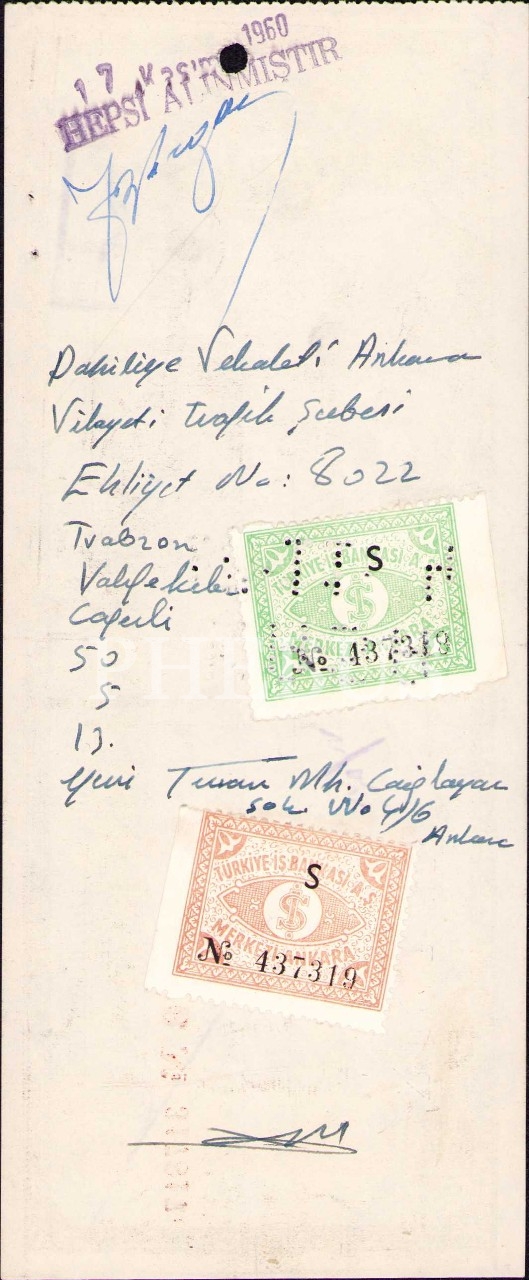 17 Kasım 1960
HEPSİ ALINMIŞTIR
Dahiliye Vekaleti Ankara
Vilayeti Trafik Şubesi
Ehliyet No: 8022
Trabzon
Vakfıkebir
50
5
13.
Yeni Turan Mh. Çağlayan
sok No 4/6
Ankara
S
TÜRKİYE İŞ BANKASI A.Ş
MERKEZİ ANKARA
№ 437319
S
TÜRKİYE İŞ BANKASI A.Ş
MERKEZİ ANKARA
№ 437319